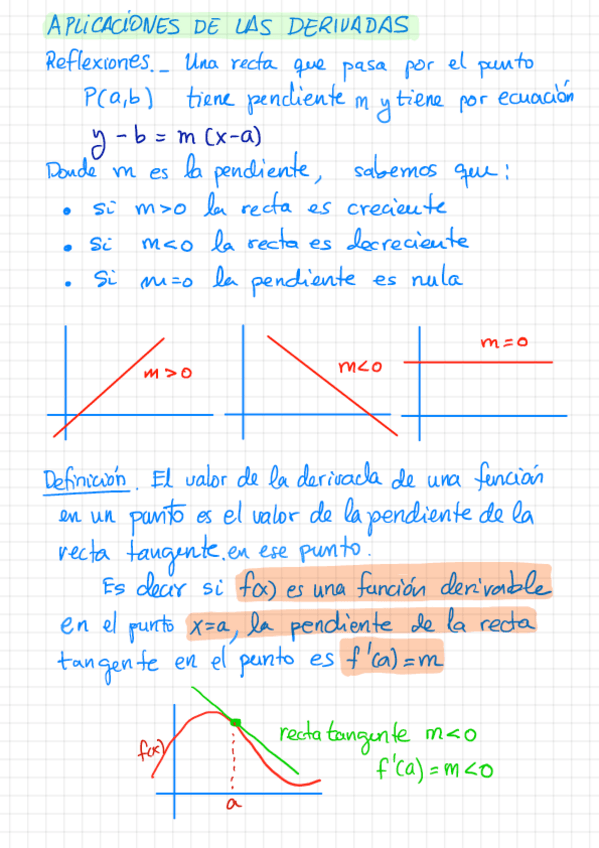 APLICACIONES DE LAS DERIVADAS
Reflexiones._ Una recta que pasa por el punto
P(a,b) tiene pendiente m y tiene por ecuación
y - b = m (x-a)
Donde m es la pendiente, sabemos que:
• Si m>0 la recta es creciente
• Si m<0 la recta es decreciente
• Si m=0 la pendiente es nula
m>0
m<0
m=0
Definición. El valor de la derivada de una función
en un punto es el valor de la pendiente de la
recta tangente en ese punto.
Es decir si f(x) es una función derivable
en el punto x=a, la pendiente de la recta
tangente en el punto es f'(a)=m
f(x)
a
recta tangente m<0
f'(a)=m<0